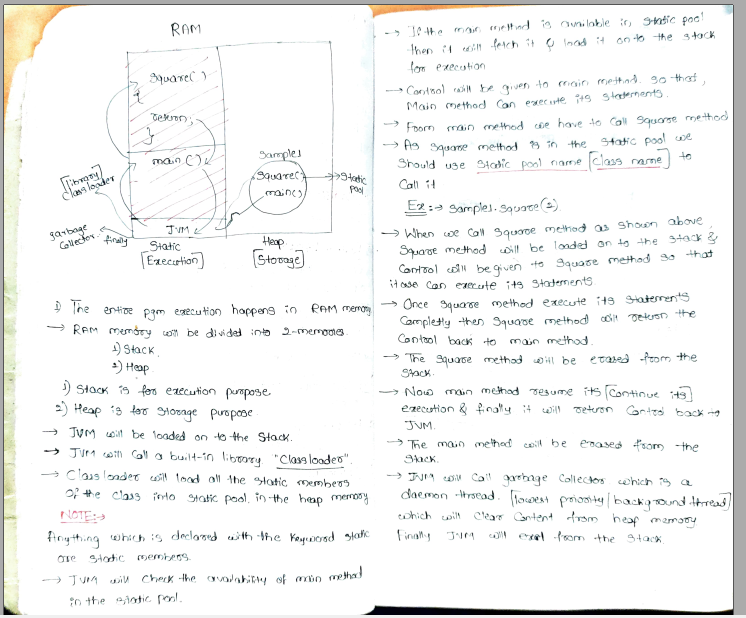 RAM
Square()
{
return;
}
main()
[library]
Classloader
Samples
Square()
main()
Static
pool
garbage
Collector
finally
JVM
Static
[Execution]
Heap
[Storage]
1) The entire pgm execution happens in RAM memory
→ RAM memory will be divided into 2-memories.
1) Stack
2) Heap
1) Stack is for execution purpose
2) Heap is for Storage purpose
→ JVM will be loaded on to the Stack.
→ JVM will call a built-in library "Classloader".
→ Classloader will load all the static members
of the class into static pool, in the heap memory
NOTE:→
Anything which is declared with the keyword static
are static members.
→ JVM will check the availability of main method
in the static pool.
→ If the main method is available in static pool
then it will fetch it & load it on to the stack
for execution
→ Control will be given to main method. so that,
Main method can execute its statements.
→ From main method we have to call square method
→ As square method is in the static pool we
should use static pool name [class name] to
Call it
Ex:→ Samples.Square(2).
→ When we call square method as shown above,
Square method will be loaded on to the stack &
Control will be given to square method so that
can execute its statements.
→ Once square method execute its statements
Completly then square method will return the
Control back to main method.
→ The square method will be erased from the
Stack.
→ Now main method resume its [Continue its]
execution & finally it will return Control back to
JVM.
→ The main method will be erased from the
Stack.
→ JVM will call garbage collector which is a
daemon thread. [lowest priority/background thread]
which will clear content from heap memory
Finally JVM will from the stack.